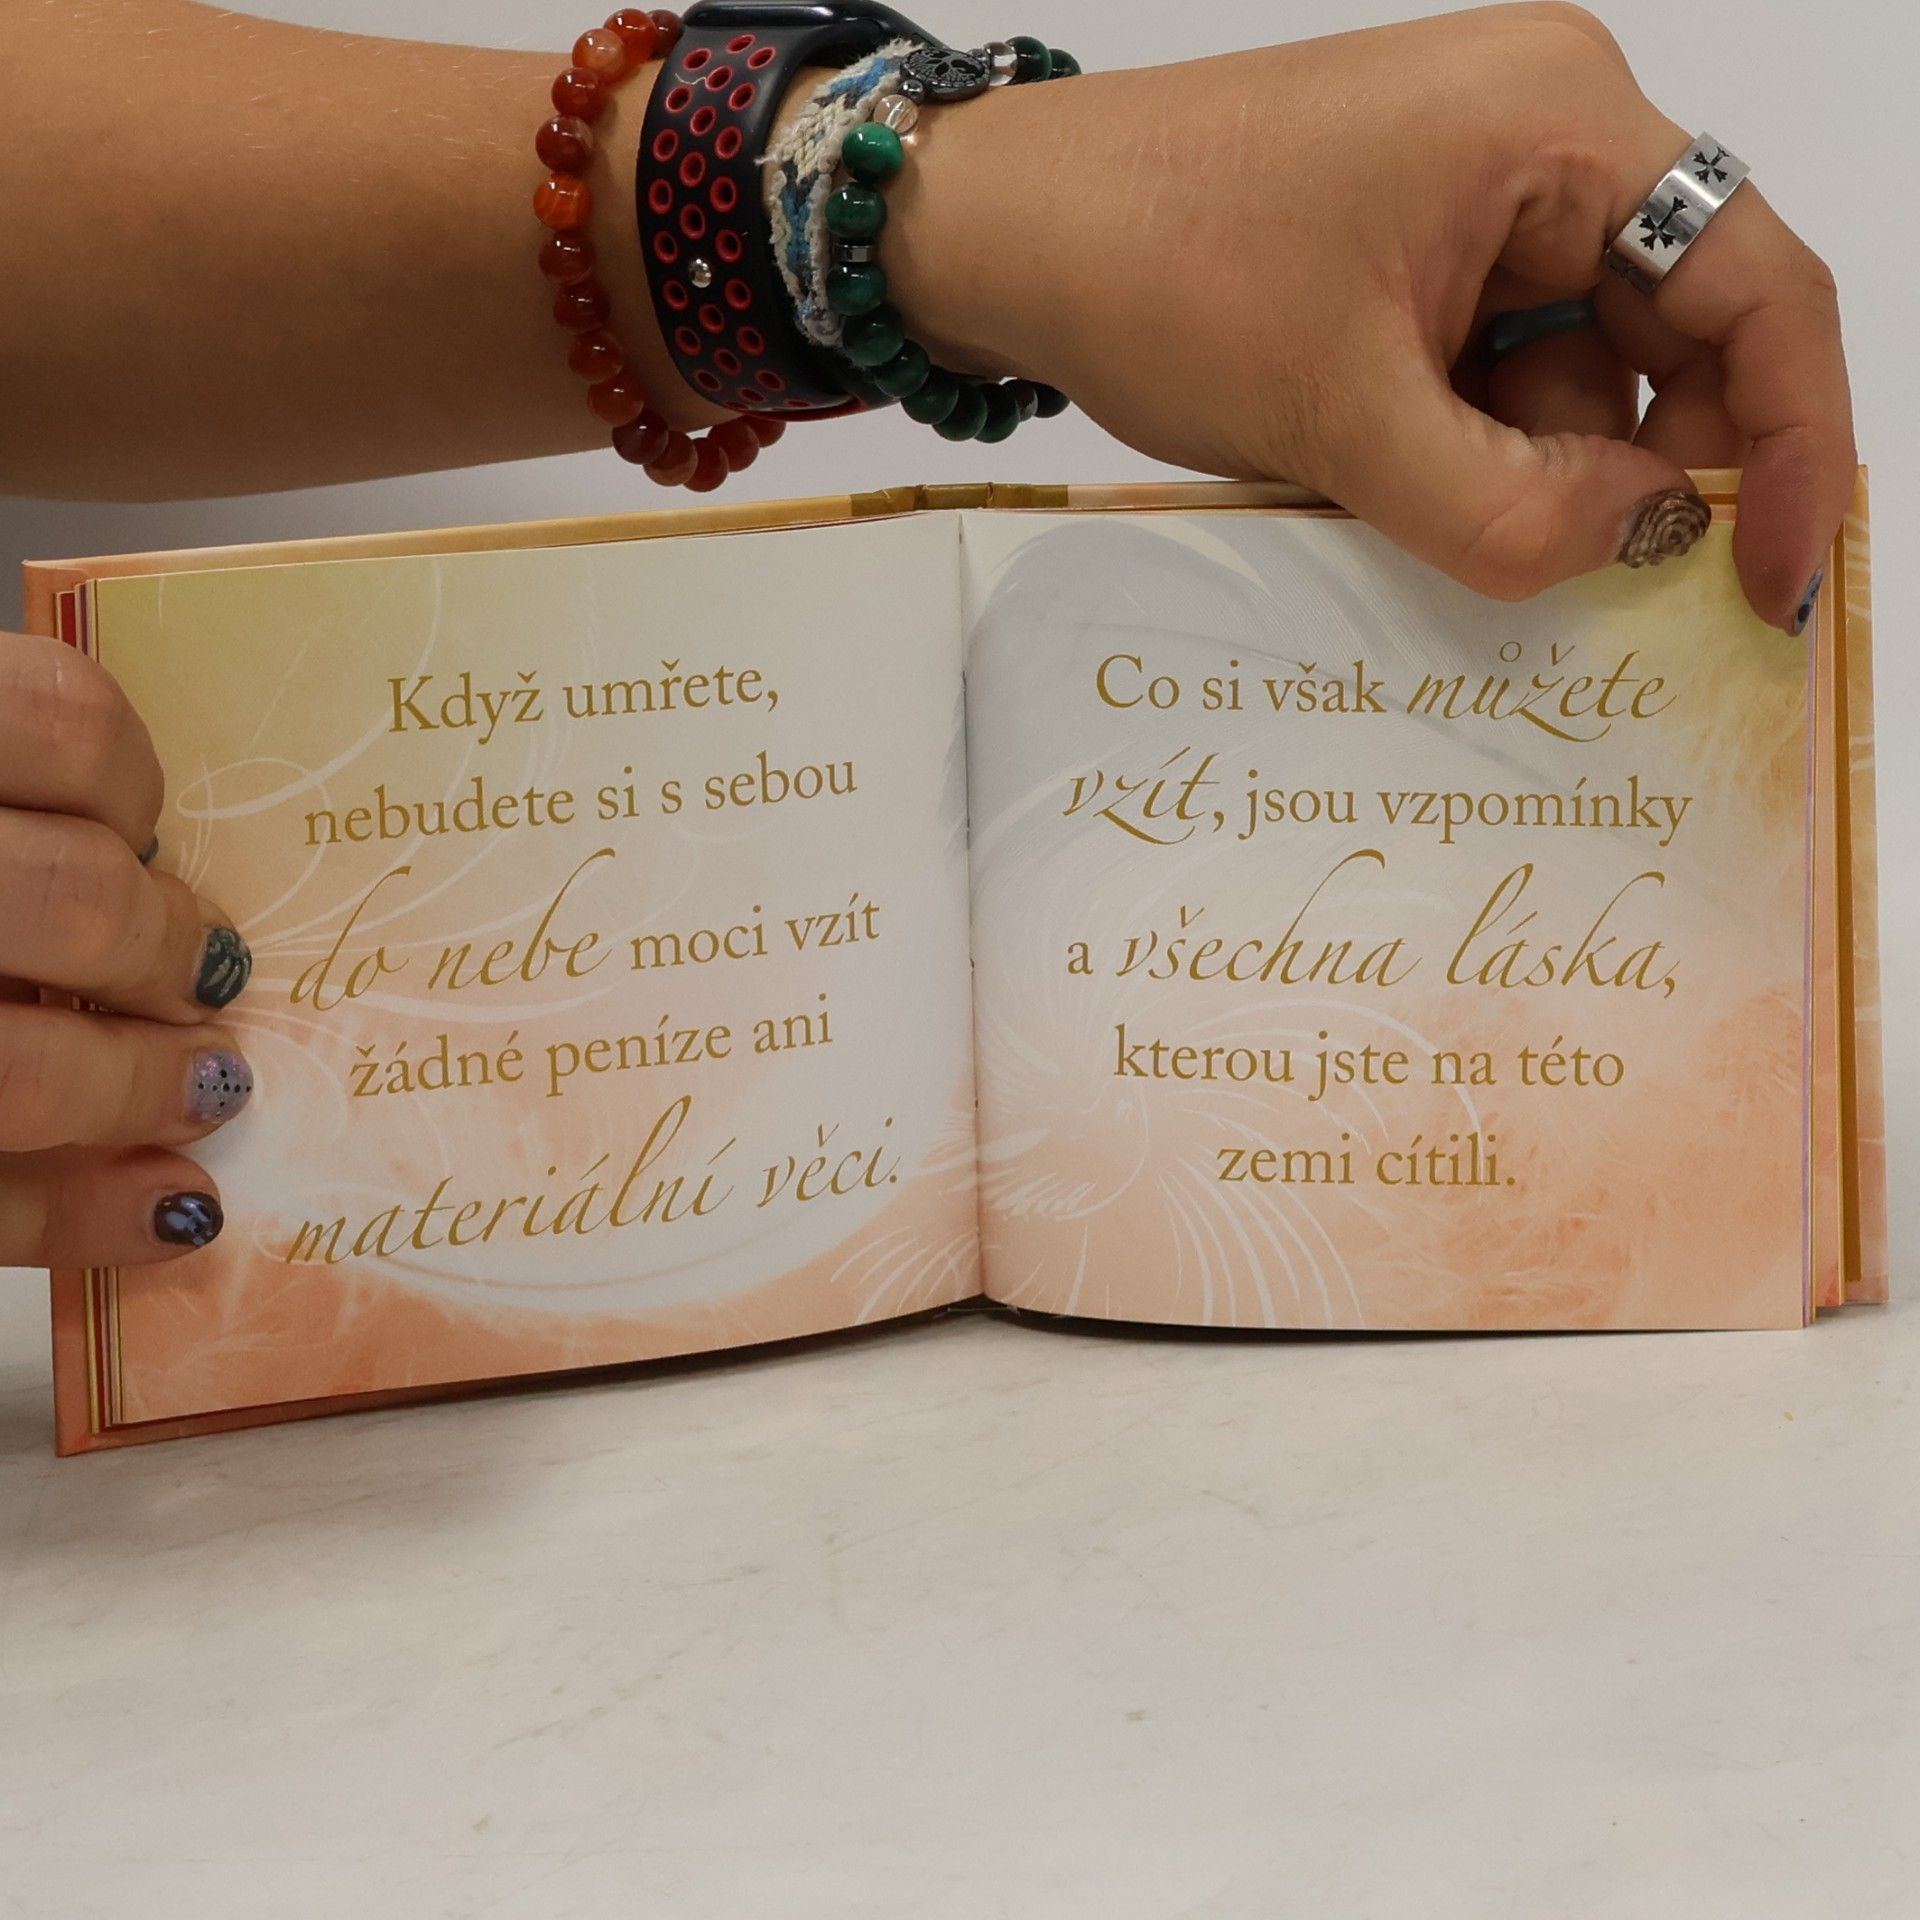 Když umřete,
nebudete si s sebou
do nebe moci vzít
žádné peníze ani
materiální věci.
Co si však můžete
vzít, jsou vzpomínky
a všechna láska,
kterou jste na této
zemi cítili.